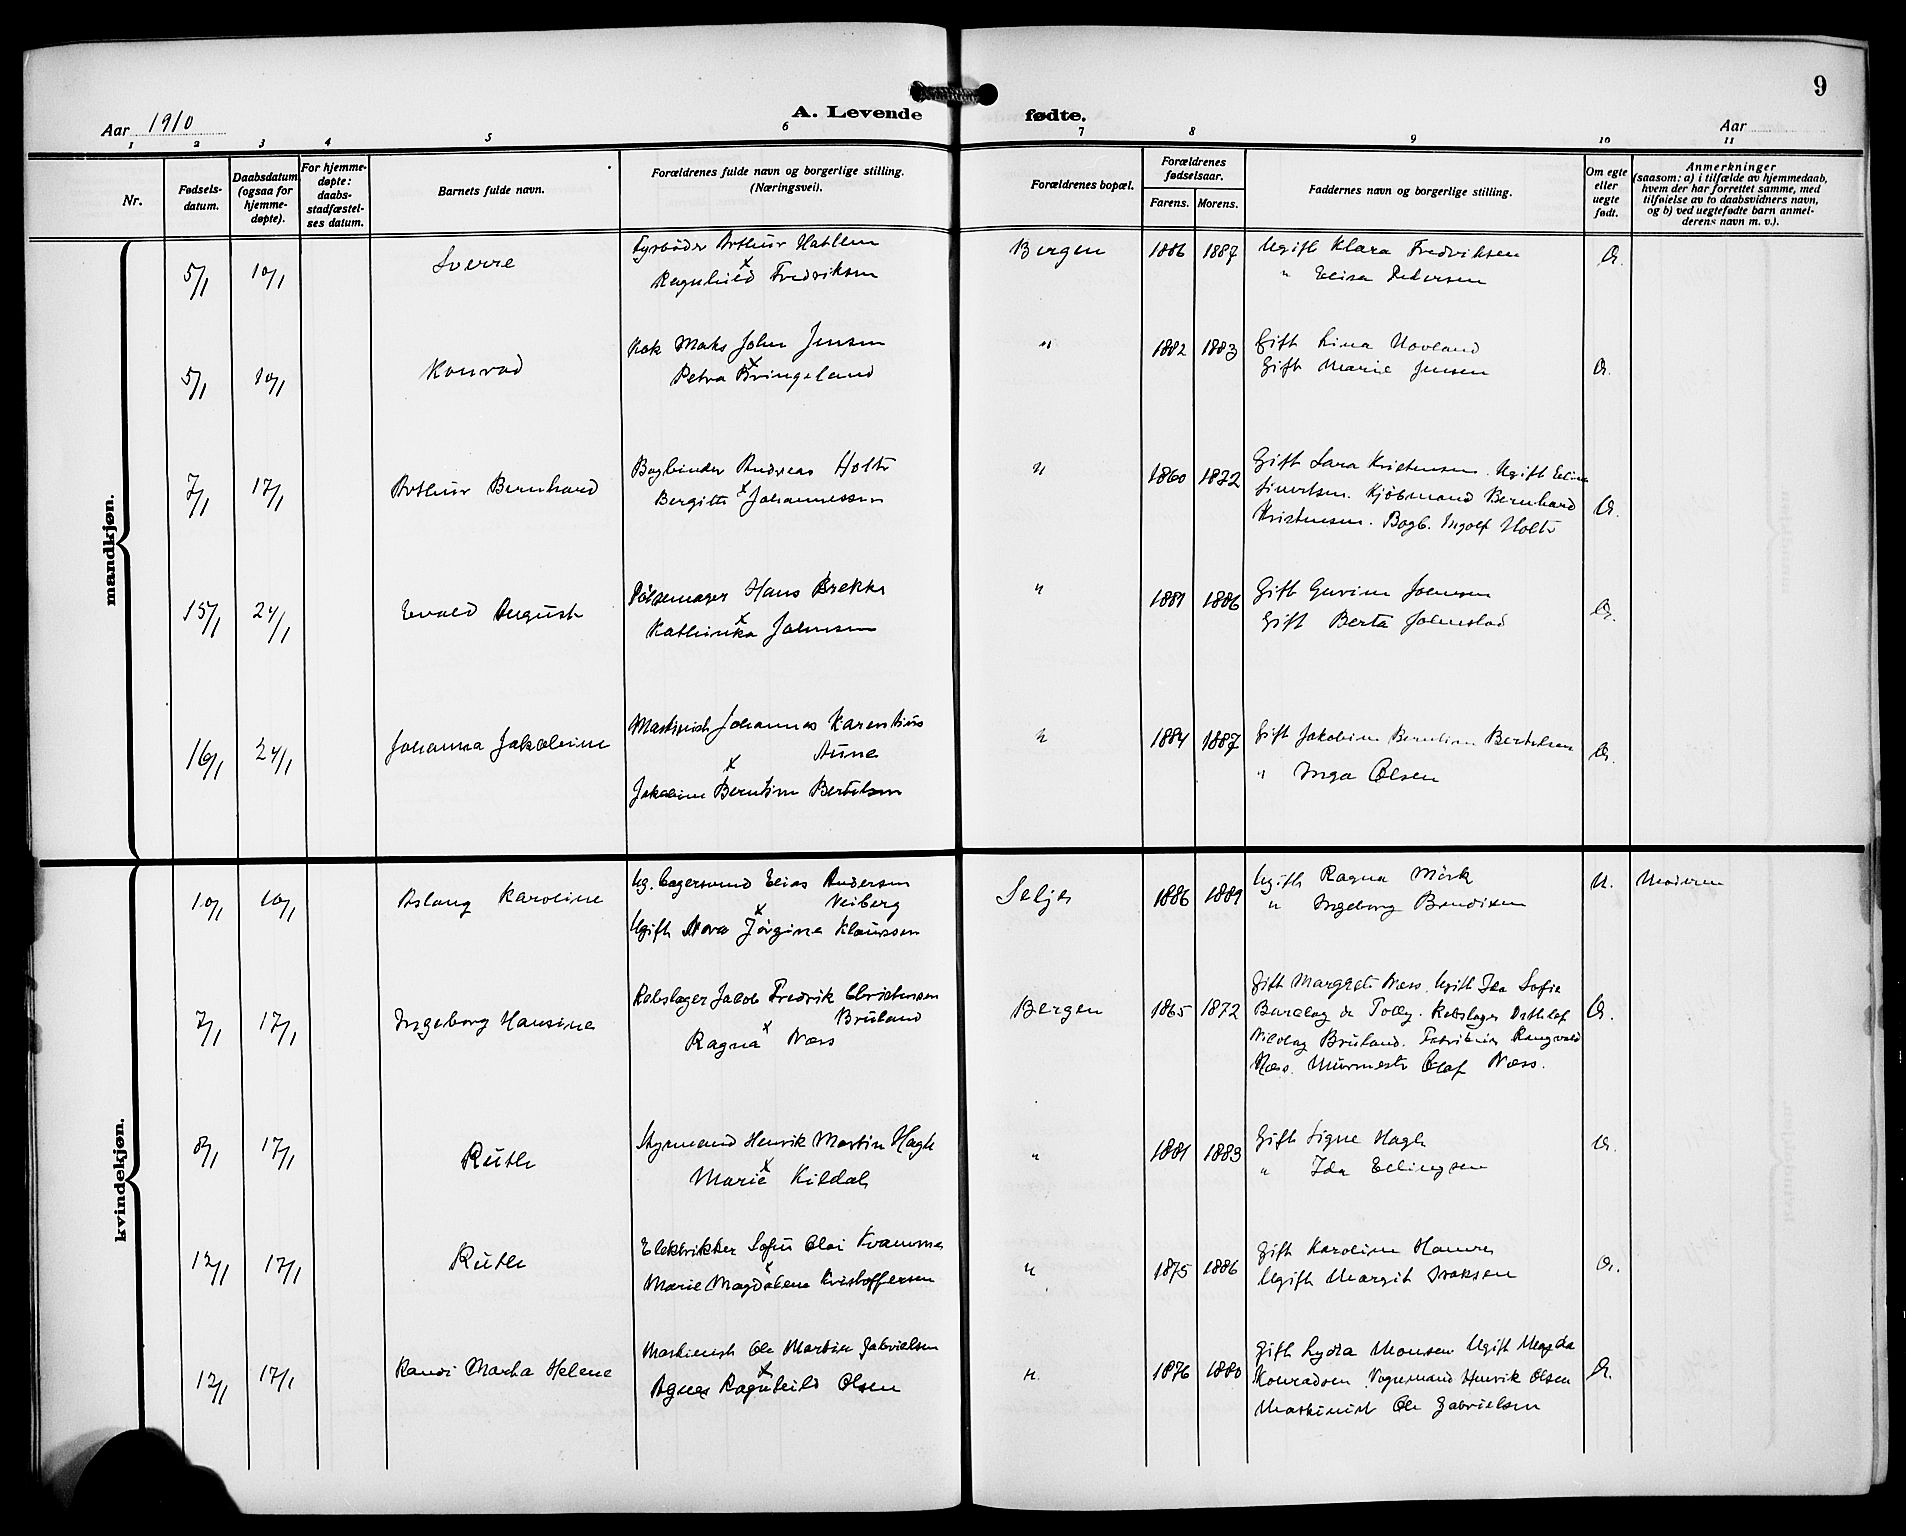 9
A. Levende fødte.
Aar 1910
Aar
1 2 3 4 5 6 7 8 9 10 11
Nr.
Fødsels-
datum.
Daabsdatum
(ogsaa for
hjemme-
døpte).
For hjemme-
døpte:
daabs-
stadfæstel-
ses datum.
Barnets fulde navn.
Forældrenes fulde navn og borgerlige stilling.
(Næringsveil).
Forældrenes bopæl.
Forældrenes
fødselsaar.
Farens. Morens.
Faddernes navn og borgerlige stilling.
Om egte
eller
uegte
født.
Anmerkninger
(saasom: a) i tilfælde av hjemmedaab,
hvem der har forrettet samme, med
tilføielse av to daabsvidners navn,
og b) ved uegtefødte barn anmel-
derens navn m. v.).
mandkjøn.
5/1 10/1 Sverre
Fyrbøder Arthur Hatlem
x
Ragnhild Fredriksen
Bergen 1886 1887
Ugift Klara Fredriksen
" Elisa Pedersen
Æ.
5/1 10/1 Konrad
Kok Maks John Jensen
x
Petra Kringeland
" 1882 1883
Gift Lina Hovland
Gift Marie Jensen
Æ.
7/1 17/1 Arthur Bernhard
Bogbinder Andreas Holte
Bergitte x Johannessen
" 1860 1872
Gift Sara Kristensen. Ugift Eline
Sivertsen. Kjøbmand Bernhard
Kristensen. Bogb. Ingolf Holte
Æ.
15/1 24/1 Evald August
Pølsemager Hans Brekke
x
Kathinka Johnsen
" 1881 1886
Gift Gurine Johnsen
Gift Berta Johnstad
Æ.
16/1 24/1 Johanna Jakobine
Maskinist Johannes Karenlius
Aune
x
Jakobine Berntine Bertelsen
" 1884 1887
Gift Jakobine Berntine Bertelsen
" Inga Olsen
Æ.
kvindekjøn.
10/1 10/1 Aslaug Karoline
Ug. Lagersvend Elias Andersen
Veiberg
x
Ugift Nora Jørgine Klaussen
Selje 1886 1889
Ugift Ragna Mörk
" Ingeborg Bendixen
U. Moderen
7/1 17/1 Ingeborg Hansine
Rebslager Jacob Fredrik Christensen
Bruland
Ragna x Næss
Bergen 1865 1872
Gift Margrete Næss. Ugift Ida Sofie
Barclay de Tolly. Rebslager Dethlef
Nicolay Bruland. Fabrikeier Rangvald
Næss. Murmestr Olaf Næss.
Æ.
8/1 17/1 Ruth
Styrmand Henrik Martin Hagh
x
Marie Kildal
" 1881 1883
Gift Signe Hagh
" Ida Ellingsen
Æ.
12/1 17/1 Ruth
Elektriker Sofus Olai Kvamme
x
Marie Magdalena Kristoffersen
" 1875 1886
Gift Karoline Hamre
Ugift Margit Isaksen
Æ.
12/1 17/1 Randi Marta Helene
Maskinist Ole Martin Gabrielsen
x
Agnes Ragnhild Olsen
" 1876 1880
Gift Lydia Monsen Ugift Magda
Konradsen. Vognmand Henrik Olsen
Maskinist Ole Gabrielsen
Æ.